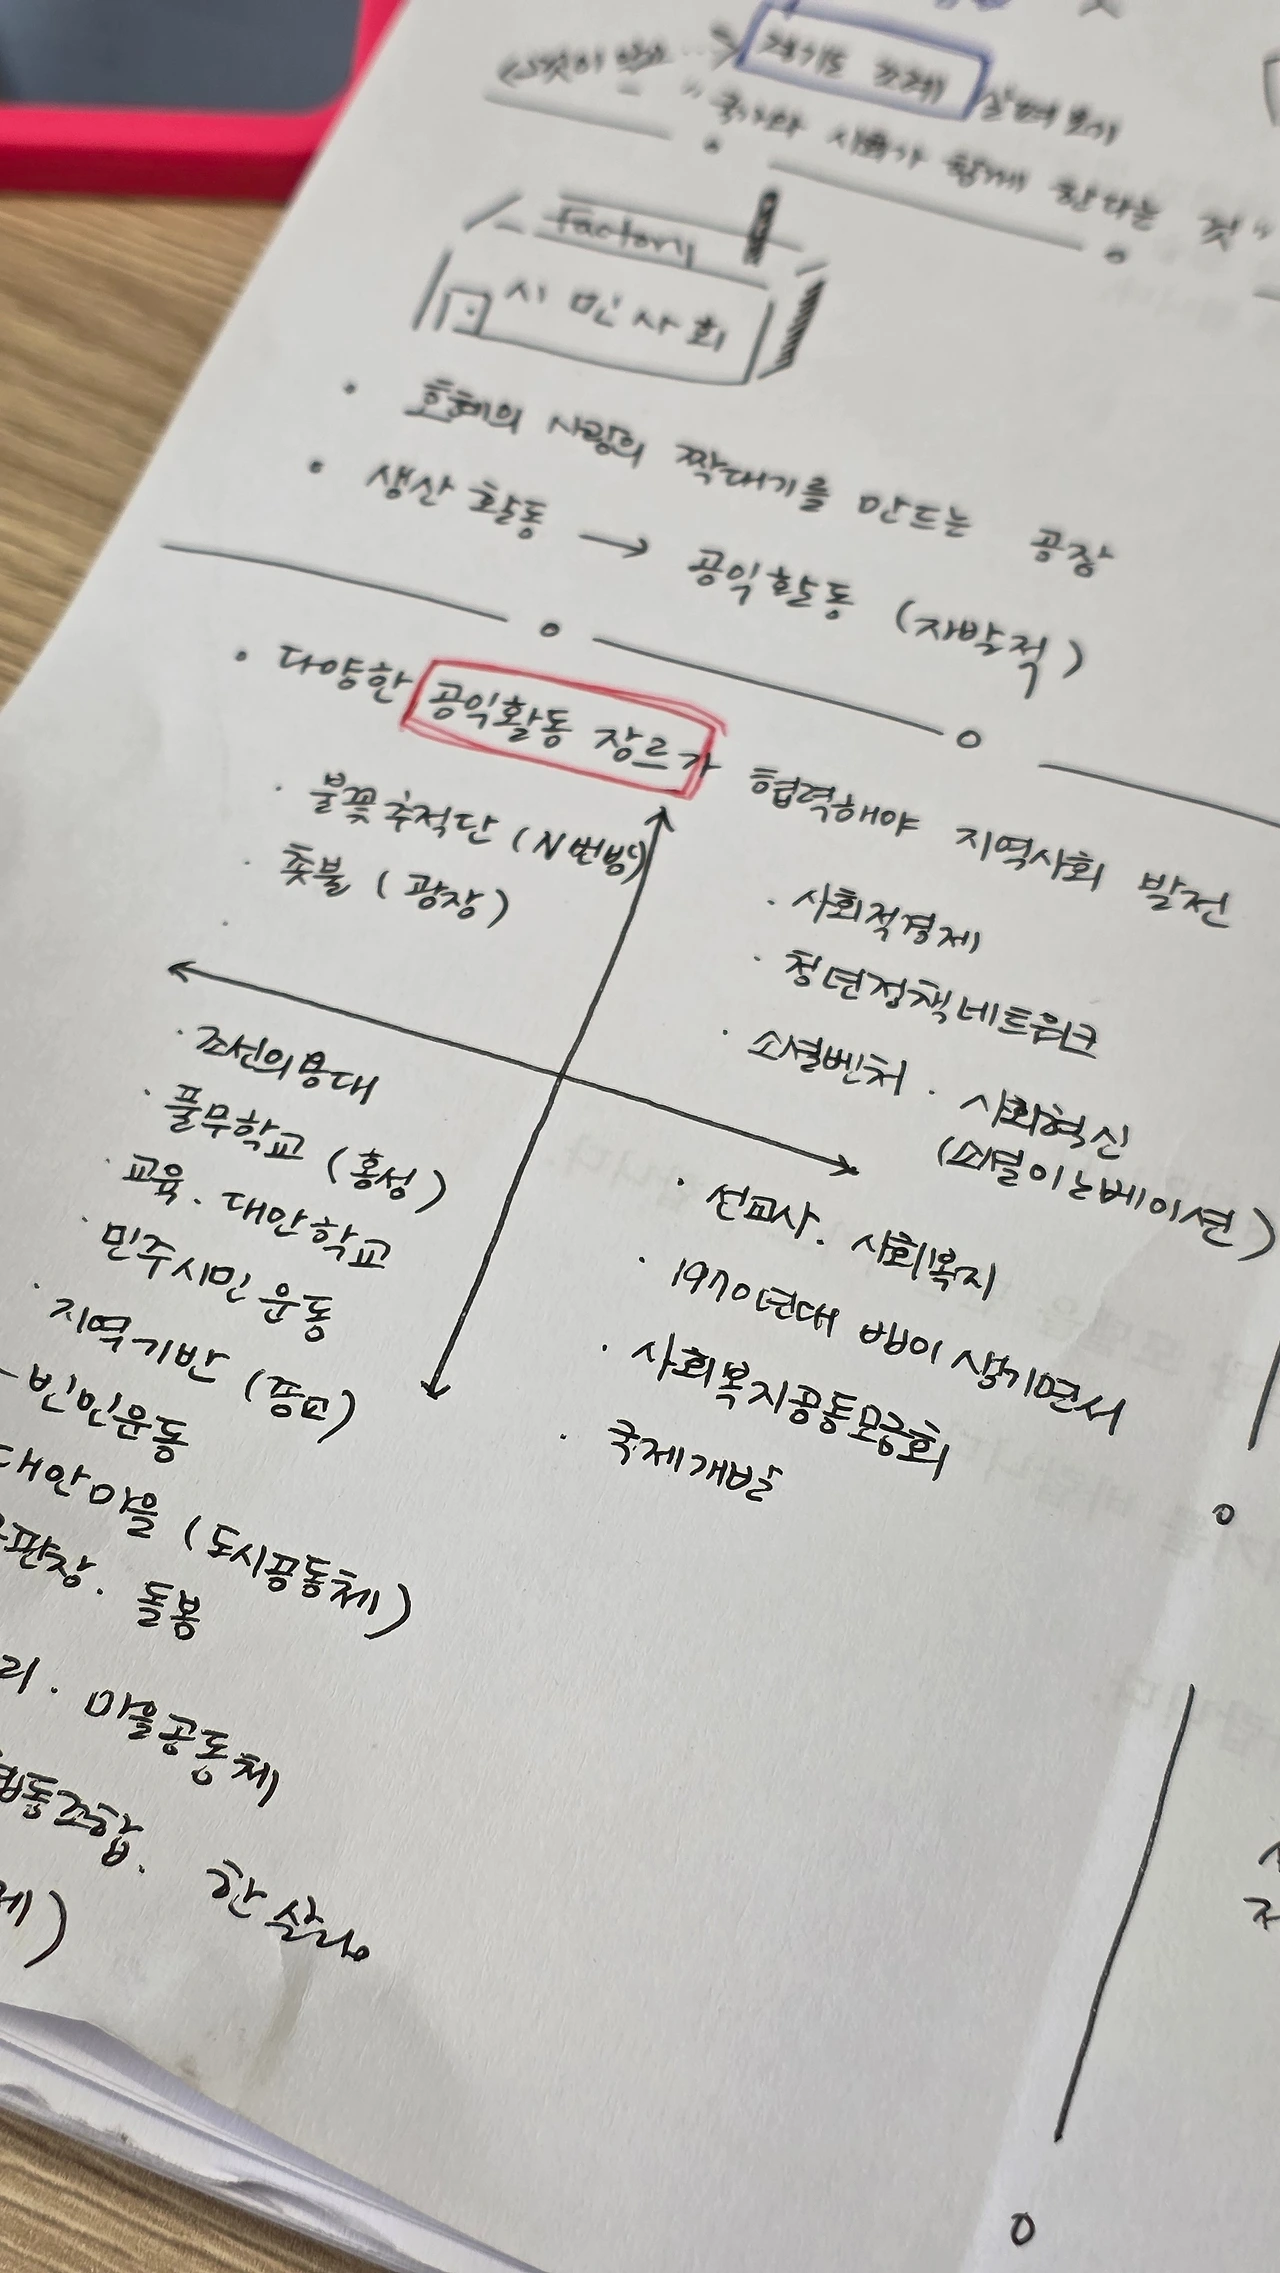 경기도 조례 살펴보기
"국가와 사회가 함께 한다는 것"
factory
시민사회
· 호혜의 사랑의 짝대기를 만드는 공장
· 생산 활동 → 공익활동 (자발적)
· 다양한 공익활동 장르가 협력해야 지역사회 발전
· 불꽃추적단 (N번방)
· 촛불 (광장)
· 사회적경제
· 청년정책네트워크
· 소셜벤처 · 사회혁신
(소셜이노베이션)
· 조선의용대
· 풀무학교 (홍성)
· 교육 · 대안학교
· 민주시민 운동
· 지역기반 (종교)
- 빈민운동
대안마을 (도시공동체)
판장 · 돌봄
리 · 마을공동체
협동조합 · 한살림
· 선교사 · 사회복지
· 1970년대 법이 생기면서
· 사회복지공동모금회
· 국제개발